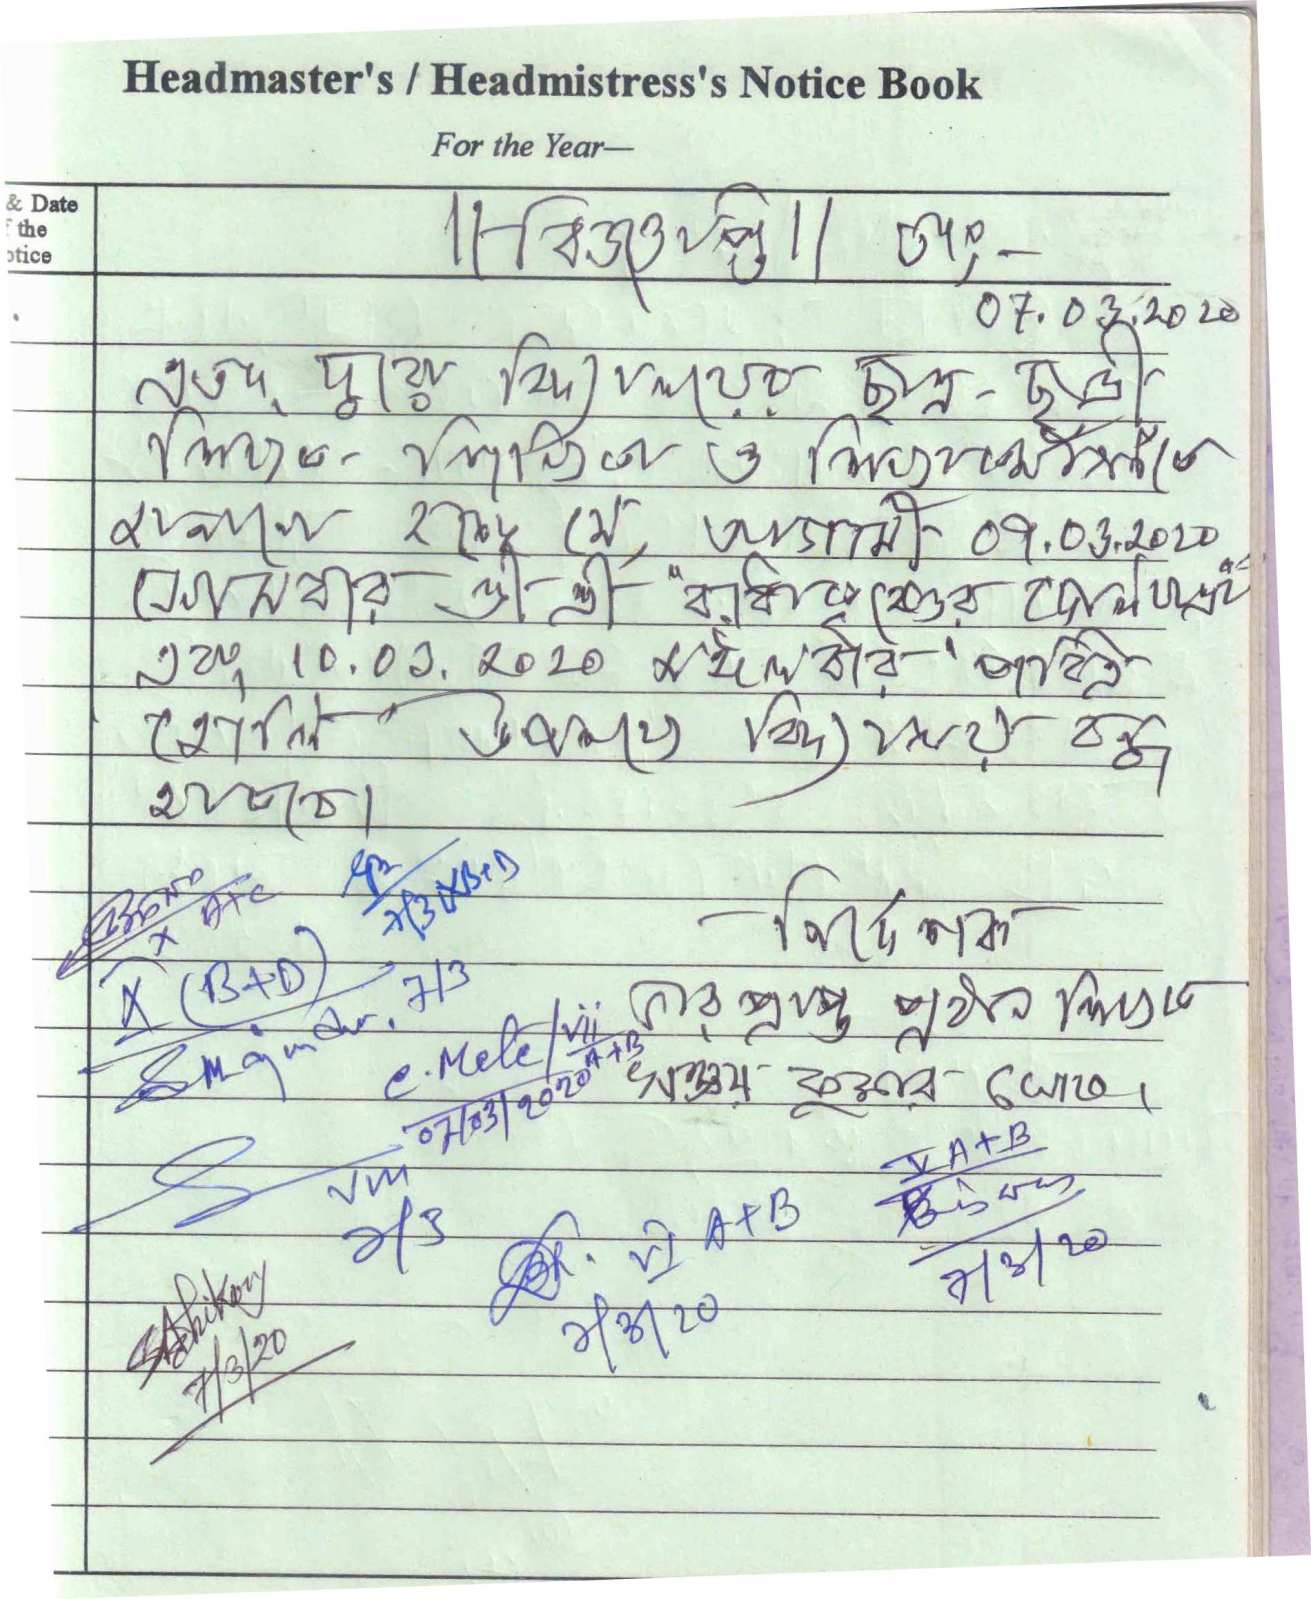 Headmaster's / Headmistress's Notice Book
For the Year—
& Date
f the
otice
॥ বিজ্ঞপ্তি ॥ তাং –
07.03.2020
এতদ্ দ্বারা বিদ্যালয়ের ছাত্র-ছাত্রী
শিক্ষক-শিক্ষিকা ও শিক্ষাকর্মীগণকে
জানানো হচ্ছে যে, আগামী 09.03.2020
সোমবার শ্রী শ্রী "রাধাকৃষ্ণের দোলযাত্রা"
এবং 10.03.2020 মঙ্গলবার 'পবিত্র
হোলি উপলক্ষে বিদ্যালয় বন্ধ
থাকবে।
X A+C
7/3 IXB+D
নির্দেশক
X (B+D)
Smajumdar. 7/3
ভারপ্রাপ্ত প্রধান শিক্ষক
c. Mete/vii A+B
07/03/2020
কুমার ঘোষ।
VIII
7/3
V A+B
Biswas
7/3/20
VI A+B
7/3/20
7/3/20